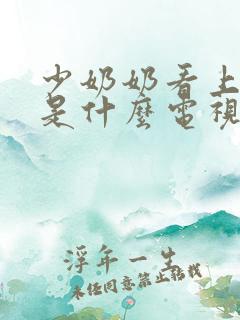 少奶奶看上
是什麼電視
浮年一生
未经同意禁止转载